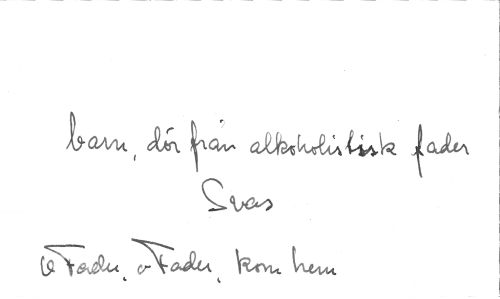 barn, dör från alkoholistisk fader
Svas
o Fader, o Fader, kom hem